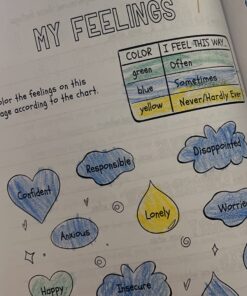 MY FEELINGS
COLOR I FEEL THIS WAY
green Often
blue Sometimes
yellow Never/Hardly Ever
olor the feelings on this
age according to the chart.
Responsible
Disappointed
Confident
Lonely
Worrie
Anxious
Happy
Insecure